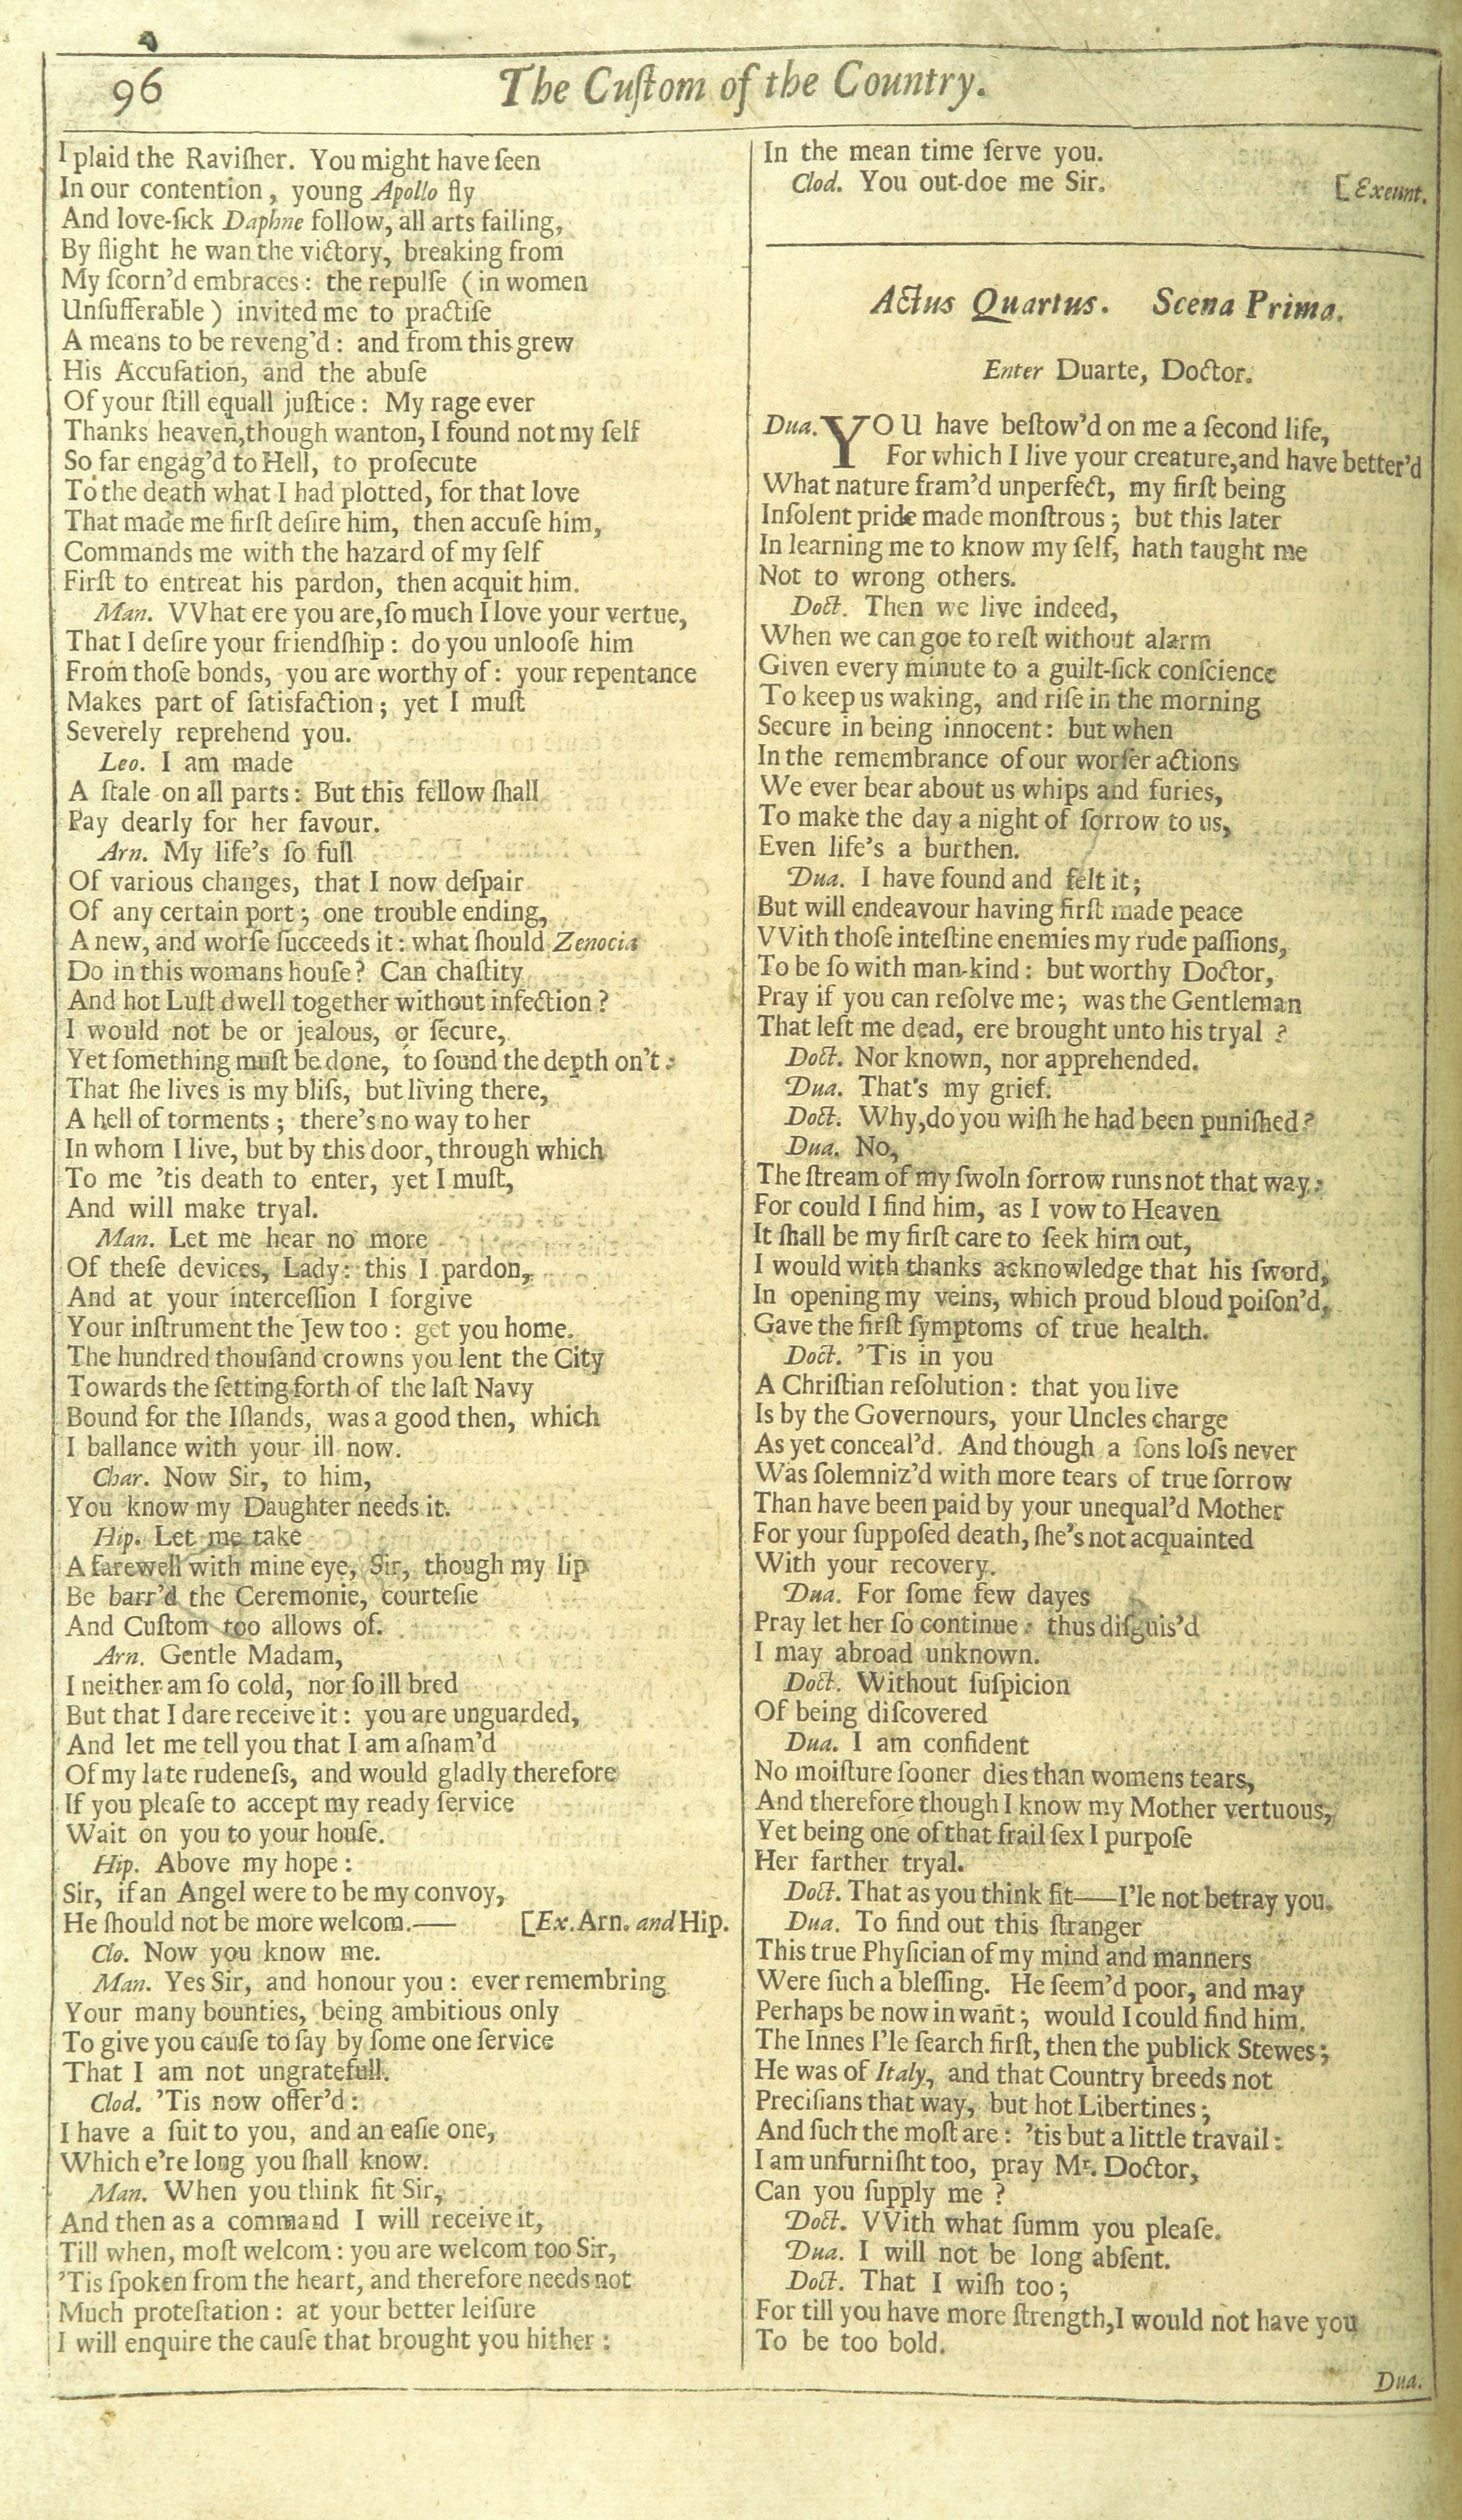 96
The Cuſtom of the Country.
I plaid the Raviſher. You might have ſeen
In our contention, young Apollo fly
And love-ſick Daphne follow, all arts failing,
By flight he wan the victory, breaking from
My ſcorn'd embraces: the repulſe (in women
Unſufferable) invited me to practiſe
A means to be reveng'd: and from this grew
His Accuſation, and the abuſe
Of your ſtill equall juſtice: My rage ever
Thanks heaven, though wanton, I found not my ſelf
So far engag'd to Hell, to proſecute
To the death what I had plotted, for that love
That made me firſt deſire him, then accuſe him,
Commands me with the hazard of my ſelf
Firſt to entreat his pardon, then acquit him.
Man. VVhat ere you are, ſo much I love your vertue,
That I deſire your friendſhip: do you unlooſe him
From thoſe bonds, you are worthy of: your repentance
Makes part of ſatisfaction; yet I muſt
Severely reprehend you.
Leo. I am made
A ſtale on all parts: But this fellow ſhall
Pay dearly for her favour.
Arn. My life's ſo full
Of various changes, that I now deſpair
Of any certain port; one trouble ending,
A new, and worſe ſucceeds it: what ſhould Zenocia
Do in this womans houſe? Can chaſtity
And hot Luſt dwell together without infection?
I would not be or jealous, or ſecure,
Yet ſomething muſt be done, to ſound the depth on't:
That ſhe lives is my bliſs, but living there,
A hell of torments; there's no way to her
In whom I live, but by this door, through which
To me 'tis death to enter, yet I muſt,
And will make tryal.
Man. Let me hear no more
Of theſe devices, Lady: this I pardon,
And at your interceſſion I forgive
Your inſtrument the Jew too: get you home.
The hundred thouſand crowns you lent the City
Towards the ſetting forth of the laſt Navy
Bound for the Iſlands, was a good then, which
I ballance with your ill now.
Char. Now Sir, to him,
You know my Daughter needs it.
Hip. Let me take
A farewell with mine eye, Sir, though my lip
Be barr'd the Ceremonie, courteſie
And Cuſtom too allows of.
Arn. Gentle Madam,
I neither am ſo cold, nor ſo ill bred
But that I dare receive it: you are unguarded,
And let me tell you that I am aſham'd
Of my late rudeneſs, and would gladly therefore
If you pleaſe to accept my ready ſervice
Wait on you to your houſe.
Hip. Above my hope:
Sir, if an Angel were to be my convoy,
He ſhould not be more welcom.—— [Ex. Arn. and Hip.
Clo. Now you know me.
Man. Yes Sir, and honour you: ever remembring
Your many bounties, being ambitious only
To give you cauſe to ſay by ſome one ſervice
That I am not ungratefull.
Clod. 'Tis now offer'd:
I have a ſuit to you, and an eaſie one,
Which e're long you ſhall know.
Man. When you think fit Sir,
And then as a command I will receive it,
Till when, moſt welcom: you are welcom too Sir,
'Tis ſpoken from the heart, and therefore needs not
Much proteſtation: at your better leiſure
I will enquire the cauſe that brought you hither:
In the mean time ſerve you.
Clod. You out-doe me Sir. [Exeunt.
Actus Quartus. Scena Prima.
Enter Duarte, Doctor.
Dua. YOU have beſtow'd on me a ſecond life,
For which I live your creature, and have better'd
What nature fram'd unperfect, my firſt being
Inſolent pride made monſtrous; but this later
In learning me to know my ſelf, hath taught me
Not to wrong others.
Doct. Then we live indeed,
When we can goe to reſt without alarm
Given every minute to a guilt-ſick conſcience
To keep us waking, and riſe in the morning
Secure in being innocent: but when
In the remembrance of our worſer actions
We ever bear about us whips and furies,
To make the day a night of ſorrow to us,
Even life's a burthen.
Dua. I have found and felt it;
But will endeavour having firſt made peace
VVith thoſe inteſtine enemies my rude paſſions,
To be ſo with man-kind: but worthy Doctor,
Pray if you can reſolve me; was the Gentleman
That left me dead, ere brought unto his tryal?
Doct. Nor known, nor apprehended.
Dua. That's my grief.
Doct. Why, do you wiſh he had been puniſhed?
Dua. No,
The ſtream of my ſwoln ſorrow runs not that way:
For could I find him, as I vow to Heaven
It ſhall be my firſt care to ſeek him out,
I would with thanks acknowledge that his ſword,
In opening my veins, which proud bloud poiſon'd,
Gave the firſt ſymptoms of true health.
Doct. 'Tis in you
A Chriſtian reſolution: that you live
Is by the Governours, your Uncles charge
As yet conceal'd. And though a ſons loſs never
Was ſolemniz'd with more tears of true ſorrow
Than have been paid by your unequal'd Mother
For your ſuppoſed death, ſhe's not acquainted
With your recovery.
Dua. For ſome few dayes
Pray let her ſo continue: thus diſguis'd
I may abroad unknown.
Doct. Without ſuſpicion
Of being diſcovered
Dua. I am confident
No moiſture ſooner dies than womens tears,
And therefore though I know my Mother vertuous,
Yet being one of that frail ſex I purpoſe
Her farther tryal.
Doct. That as you think fit——I'le not betray you.
Dua. To find out this ſtranger
This true Phyſician of my mind and manners
Were ſuch a bleſſing. He ſeem'd poor, and may
Perhaps be now in want; would I could find him.
The Innes I'le ſearch firſt, then the publick Stewes;
He was of Italy, and that Country breeds not
Preciſians that way, but hot Libertines;
And ſuch the moſt are: 'tis but a little travail:
I am unfurniſht too, pray Mr. Doctor,
Can you ſupply me?
Doct. VVith what ſumm you pleaſe.
Dua. I will not be long abſent.
Doct. That I wiſh too;
For till you have more ſtrength, I would not have you
To be too bold.
Dua.